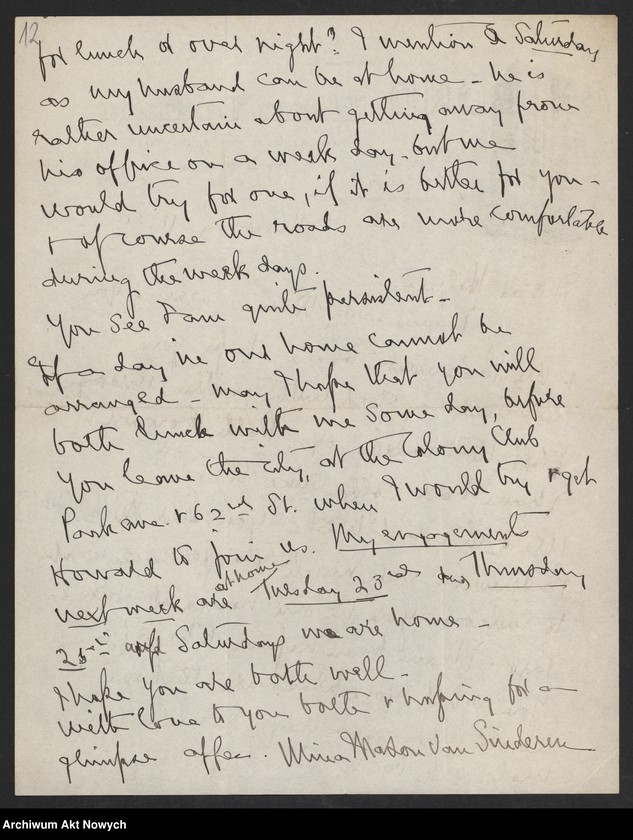 12
for lunch or over night? I mention a Saturday
as my husband can be at home - he is
rather uncertain about getting away from
his office on a week day - but we
would try for one, if it is better for you -
& of course the roads are more comfortable
during the week days.
You see I am quite persistent -
If a day in our home cannot be
arranged - may I hope that you will
both lunch with me some day, before
you leave the city, at the Colony Club
Park ave. & 62nd St. when I would try & get
Howard to join us. My engagements
next week are at home Tuesday 23rd Thursday
25th Saturdays we are home -
I hope you are both well -
With love to you both & hoping for a
glimpse of you. Mina Mason Van Sinderen
Archiwum Akt Nowych